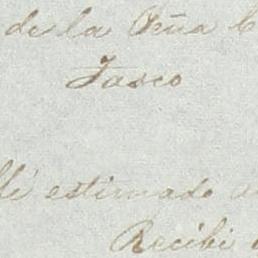 de la Peña
Tasco
estimado
Recibi